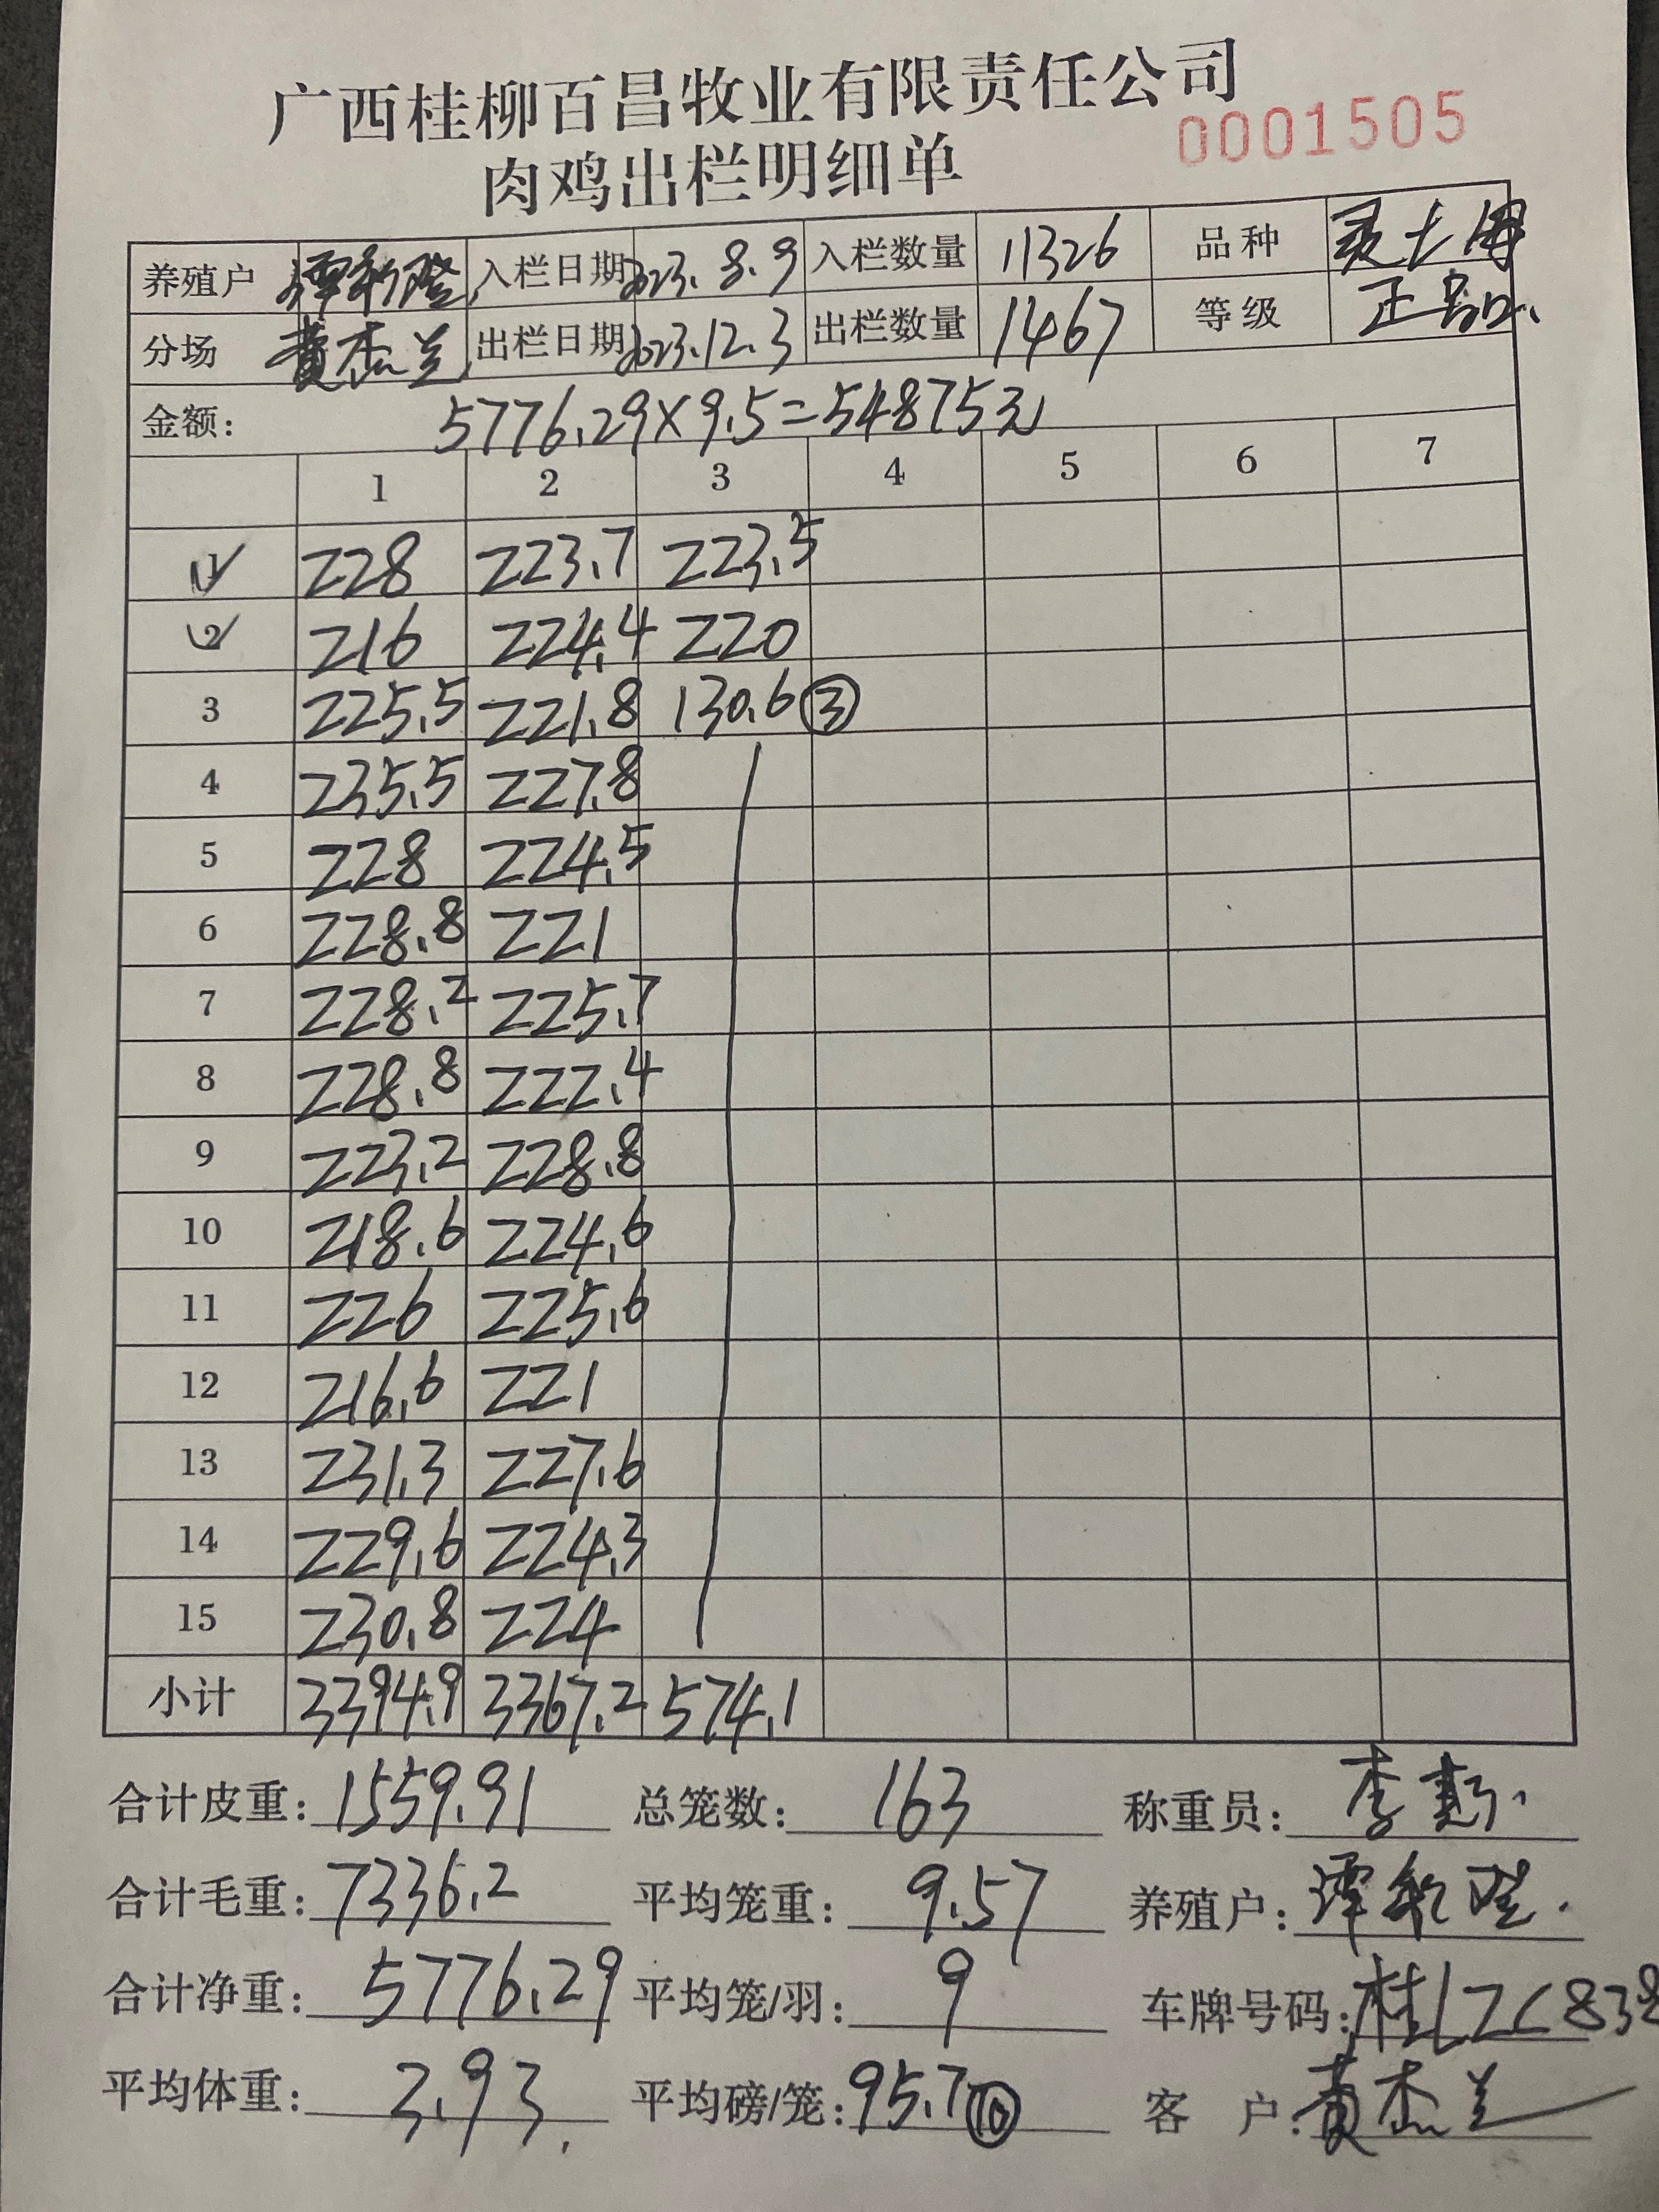 广西桂柳百昌牧业有限责任公司
肉鸡出栏明细单 0001505
养殖户 谭新登 入栏日期 2023.8.9 入栏数量 11326 品种 灵土母
分场 黄杰兰 出栏日期 2023.12.3 出栏数量 1467 等级 正品
金额: 5776.29×9.5=54875元
1 2 3 4 5 6 7
1 228 223.7 223.5
2 216 224.4 220
3 225.5 221.8 130.6 ③
4 235.5 227.8
5 228 224.5
6 228.8 221
7 228.2 225.7
8 228.8 222.4
9 223.2 228.8
10 218.6 224.6
11 226 225.6
12 216.6 221
13 231.3 227.6
14 229.6 224.3
15 230.8 224
小计 3394.9 3367.2 574.1
合计皮重: 1559.91 总笼数: 163 称重员: 李
合计毛重: 7336.2 平均笼重: 9.57 养殖户: 谭新登
合计净重: 5776.29 平均笼/羽: 9 车牌号码: 桂LZC838
平均体重: 3.93 平均磅/笼: 95.7 ⑩ 客户: 黄杰兰